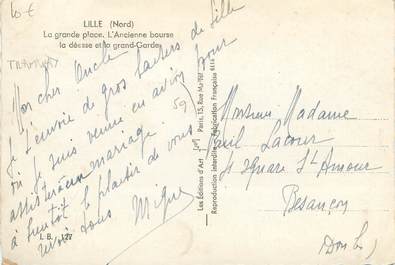 10 €
LILLE (Nord)
La grande place. L'Ancienne bourse
la déesse et la grand-Garde
TRAMWAY
Mon cher Oncle
Je t'envoie de gros baisers de Lille
où je suis venue en avion pour
assister à un mariage. 59
à bientôt le plaisir de vous
revoir tous
L. B. - 127
Les Editions d'Art
Paris, 15, Rue Martel
Reproduction interdite - Fabrication Française
Monsieur Madame
Paul
4 square St Amour
Besançon
(Doubs)